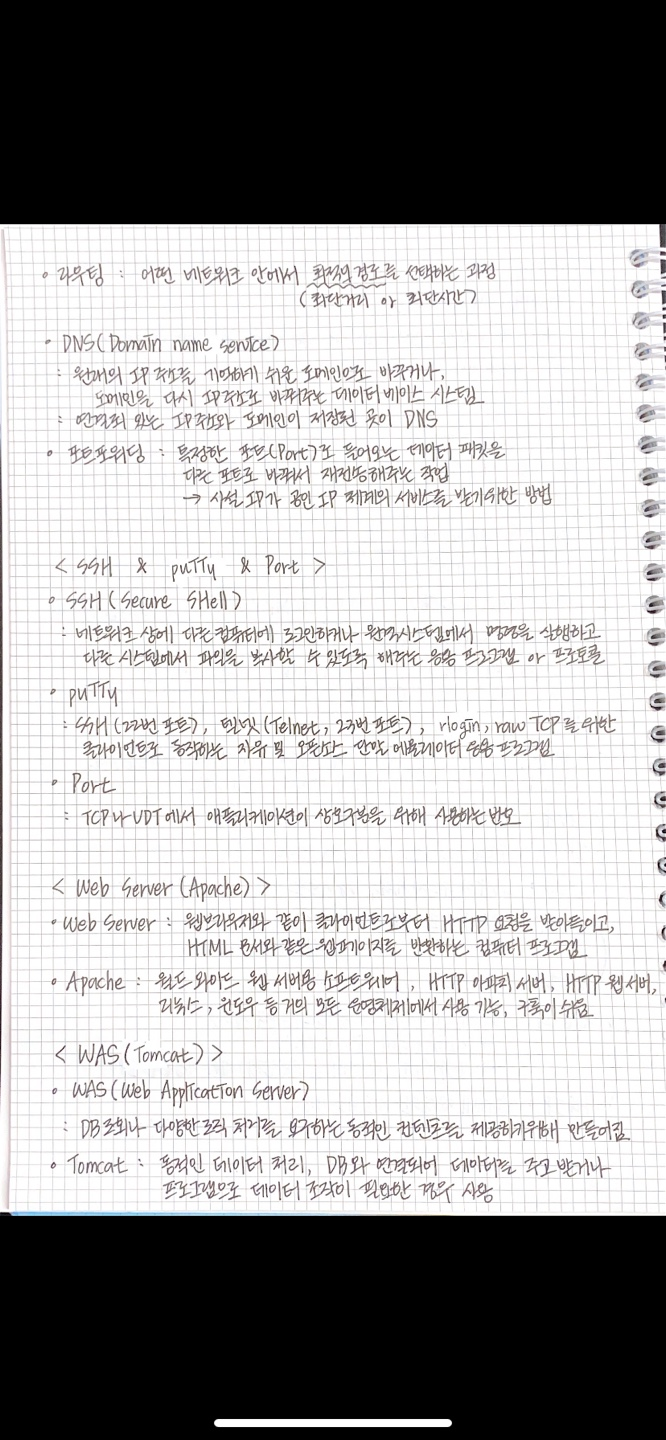 • 라우팅 : 어떤 네트워크 안에서 최적의 경로를 선택하는 과정
(최단거리 or 최단시간)
• DNS(Domain name service)
: 원래의 IP 주소를 기억하기 쉬운 도메인으로 바꾸거나,
도메인을 다시 IP 주소로 바꿔주는 데이터베이스 시스템
: 연결되 있는 IP주소와 도메인이 저장된 곳이 DNS
• 포트포워딩 : 특정한 포트(Port)로 들어오는 데이터 패킷을
다른 포트로 바꿔서 재전송해주는 작업
→ 사설 IP가 공인 IP 체계의 서비스를 받기위한 방법
< SSH & puTTy & Port >
• SSH(Secure SHell)
: 네트워크 상에 다른 컴퓨터에 로그인하거나 원격시스템에서 명령을 실행하고
다른 시스템에서 파일을 복사할 수 있도록 해주는 응용 프로그램 or 프로토콜
• puTTy
: SSH(22번 포트), 텔넷(Telnet, 23번 포트), rlogin, raw TCP를 위한
클라이언트로 동작하는 자유 및 오픈소스 단말 에뮬레이터 응용 프로그램
• Port
: TCP나 UDT에서 애플리케이션이 상호구분을 위해 사용하는 번호
< Web Server(Apache) >
• Web Server : 웹브라우저와 같이 클라이언트로부터 HTTP 요청을 받아들이고,
HTML 문서와 같은 웹페이지를 반환하는 컴퓨터 프로그램
• Apache : 월드 와이드 웹 서버용 소프트웨어, HTTP 아파치 서버, HTTP 웹서버,
리눅스, 윈도우 등 거의 모든 운영체제에서 사용 가능, 구축이 쉬움
< WAS(Tomcat) >
• WAS(Web Application Server)
: DB조회나 다양한 로직 처리를 요구하는 동적인 컨텐츠를 제공하기위해 만들어짐
• Tomcat : 동적인 데이터 처리, DB와 연결되어 데이터를 주고 받거나
프로그램으로 데이터 조작이 필요한 경우 사용